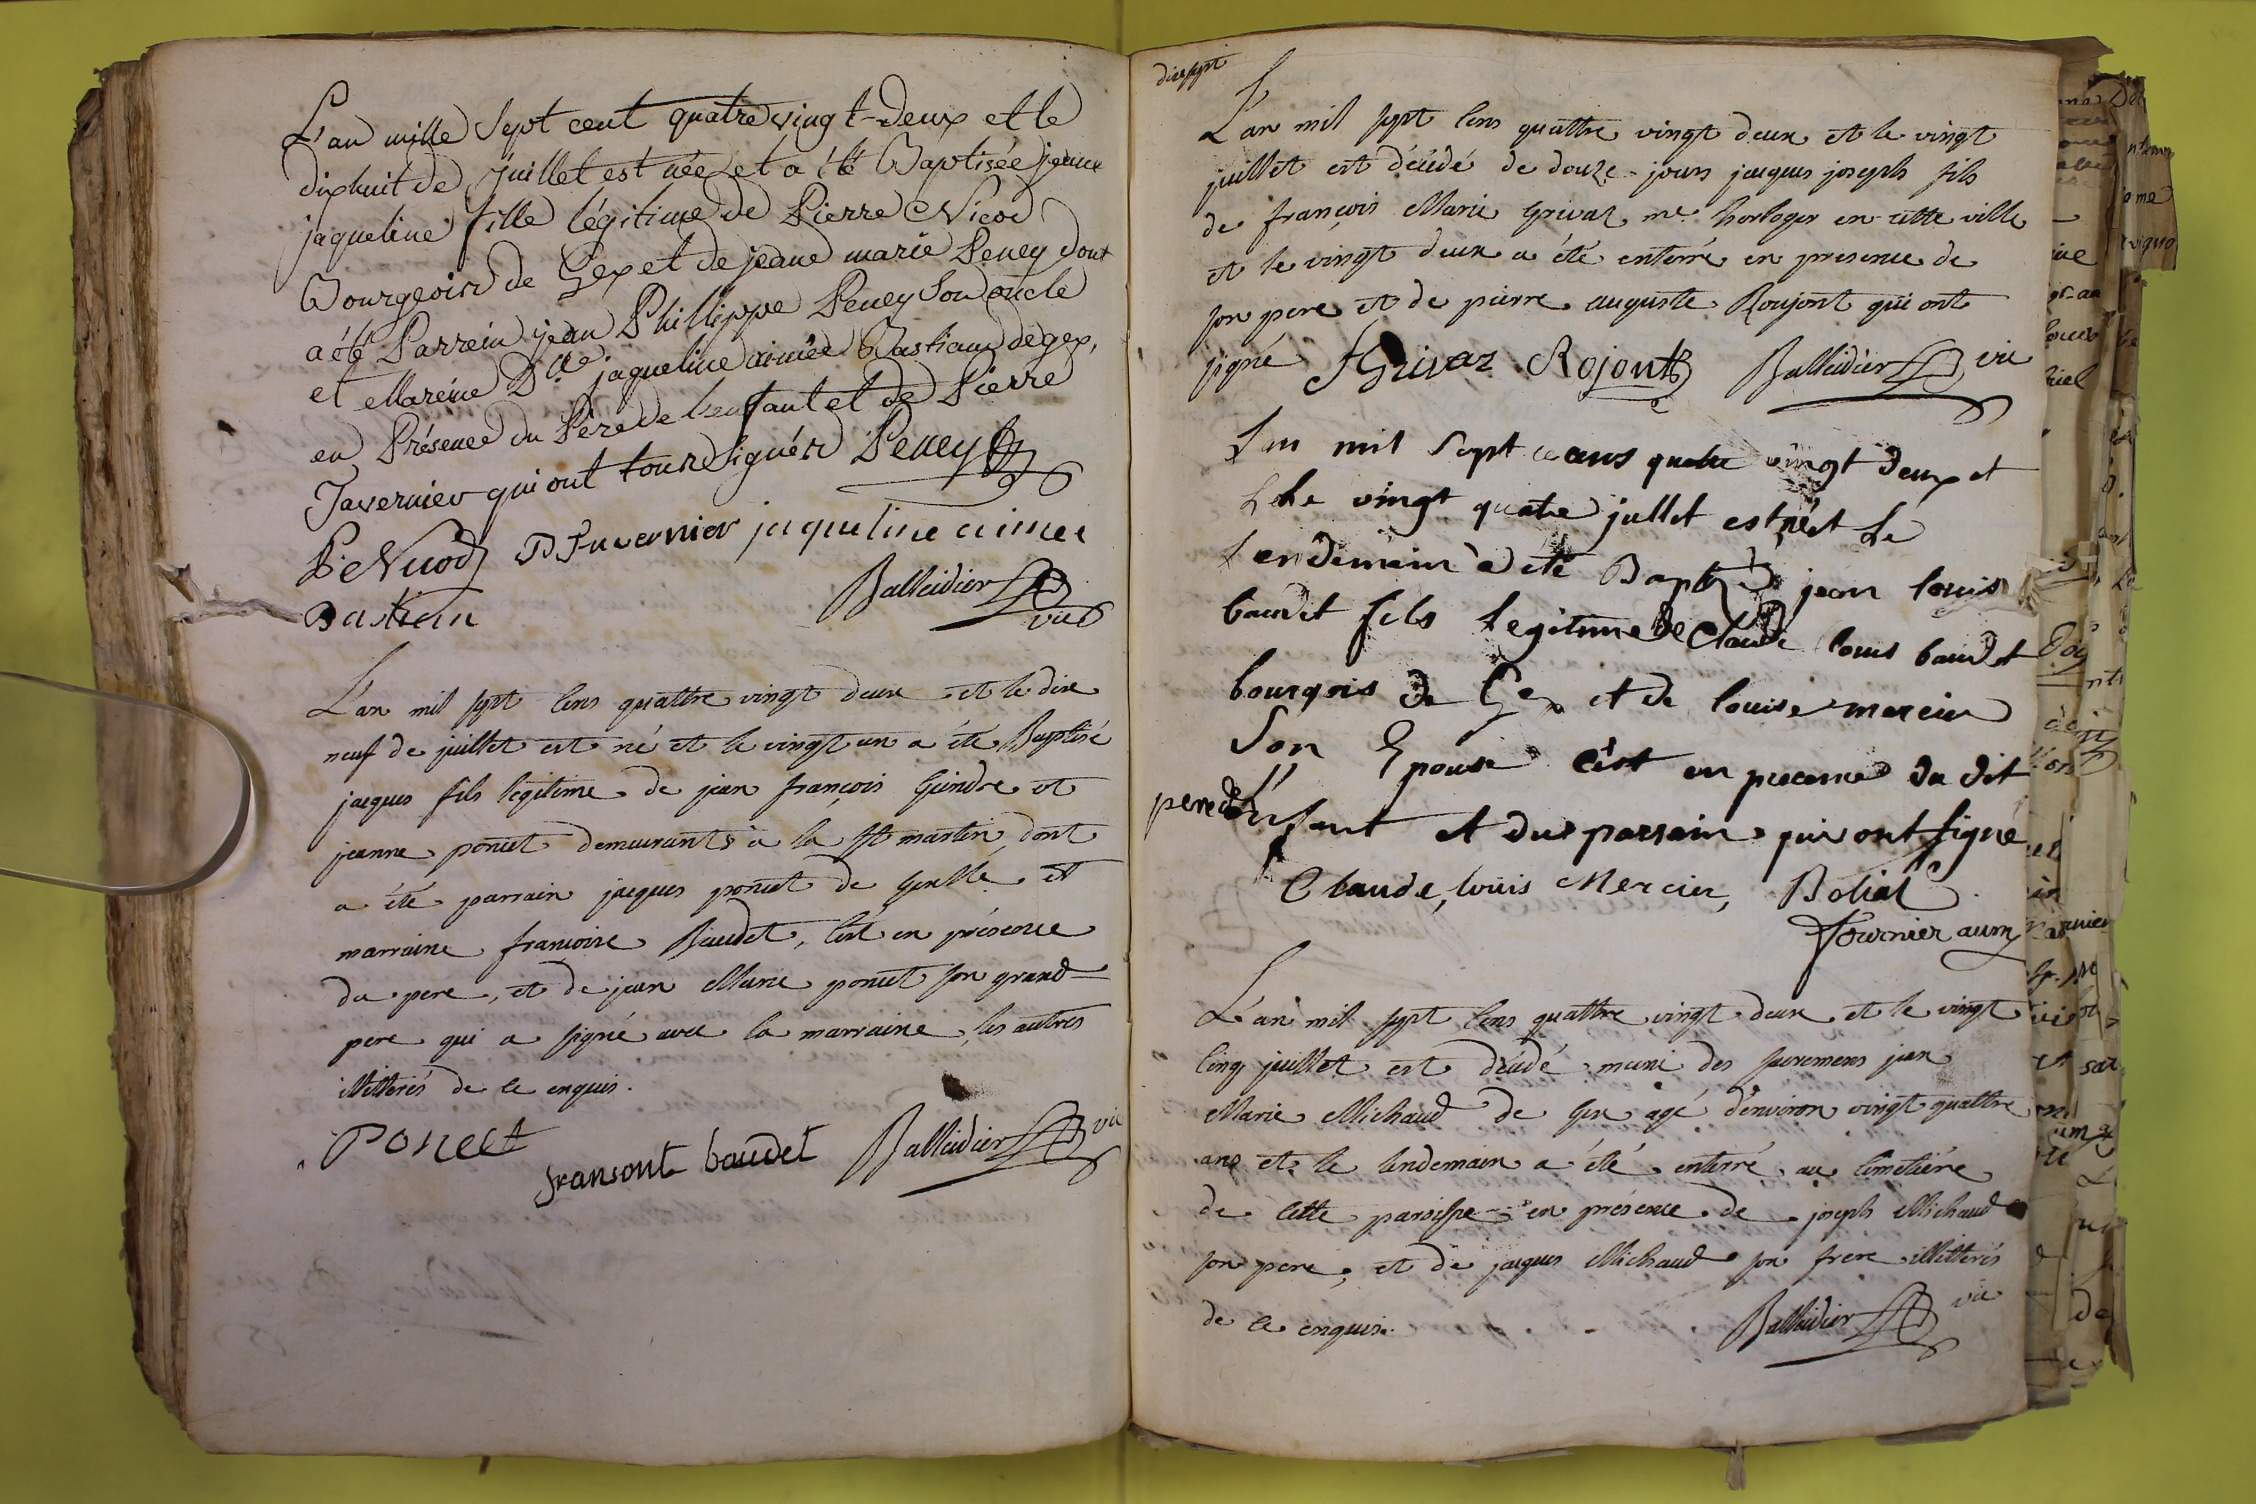 L'an mille Sept cent quatre vingt-Deux et le
dixhuit de Juillet est née et a été Baptisée jeanne
jaqueline fille légitime de Pierre Nicod
Bourgeois de Gex et de jeane marie Peney dont
a été Parrein jean Philippe Peney Son oncle
et Mareine Dlle jaqueline aimée Bastian de gex,
en Présence du Père de l'enfant et de Pierre
Tavernier qui ont tous Signés Peney
P Nicod P Tavernier jaqueline aimee
Bastian Balleidier vic
L'an mil sept cens quattre vingt deux et le dix
neuf de juillet est né et le vingt un a été Baptisé
jacques fils légitime de jean françois Gindre et
jeanne poncet demeurants à la St martin, dont
a été parrain jacques poncet de et
marraine françoise Baudet, c'est en présence
du pere, et de jean Marie poncet son grand
pere qui a signé avec la marraine, les autres
illitterés de ce enquis.
Poncet fransont baudet Balleidier vic
dixsept
L'an mil sept cens quattre vingt deux et le vingt
juillet est décédé de douze jours jacques joseph fils
de françois Marie Grivaz me horloger en cette ville
et le vingt deux a été enterré en presence de
son pere et de pierre auguste Roujont qui ont
signé fGrivaz Rojont Balleidier vic
L'an mil Sept ceans quatre vingt deux et
Lele vingt quatre jullet est né et Le
Lendemain a été Baptisé jean louis
baudet fils Legitime de Claude louis baudet
bourgois de Gex et de louise mercier
Son Epouse c'est en presence du dit
pere de l'enfant et du parrain qui ont signé
Claude, louis Mercier, Boliat
Fournier aum
L'an mil sept cens quattre vingt deux et le vingt
cinq juillet est décédé muni des sacremens jean
Marie Michaud de Gex agé d'environ vingt quattre
ans et le lendemain a été enterré au cimetière
de cette paroisse en présence de joseph Michaud
son père, et de jacques Michaud son frere illitterés
de ce enquis. Balleidier vic